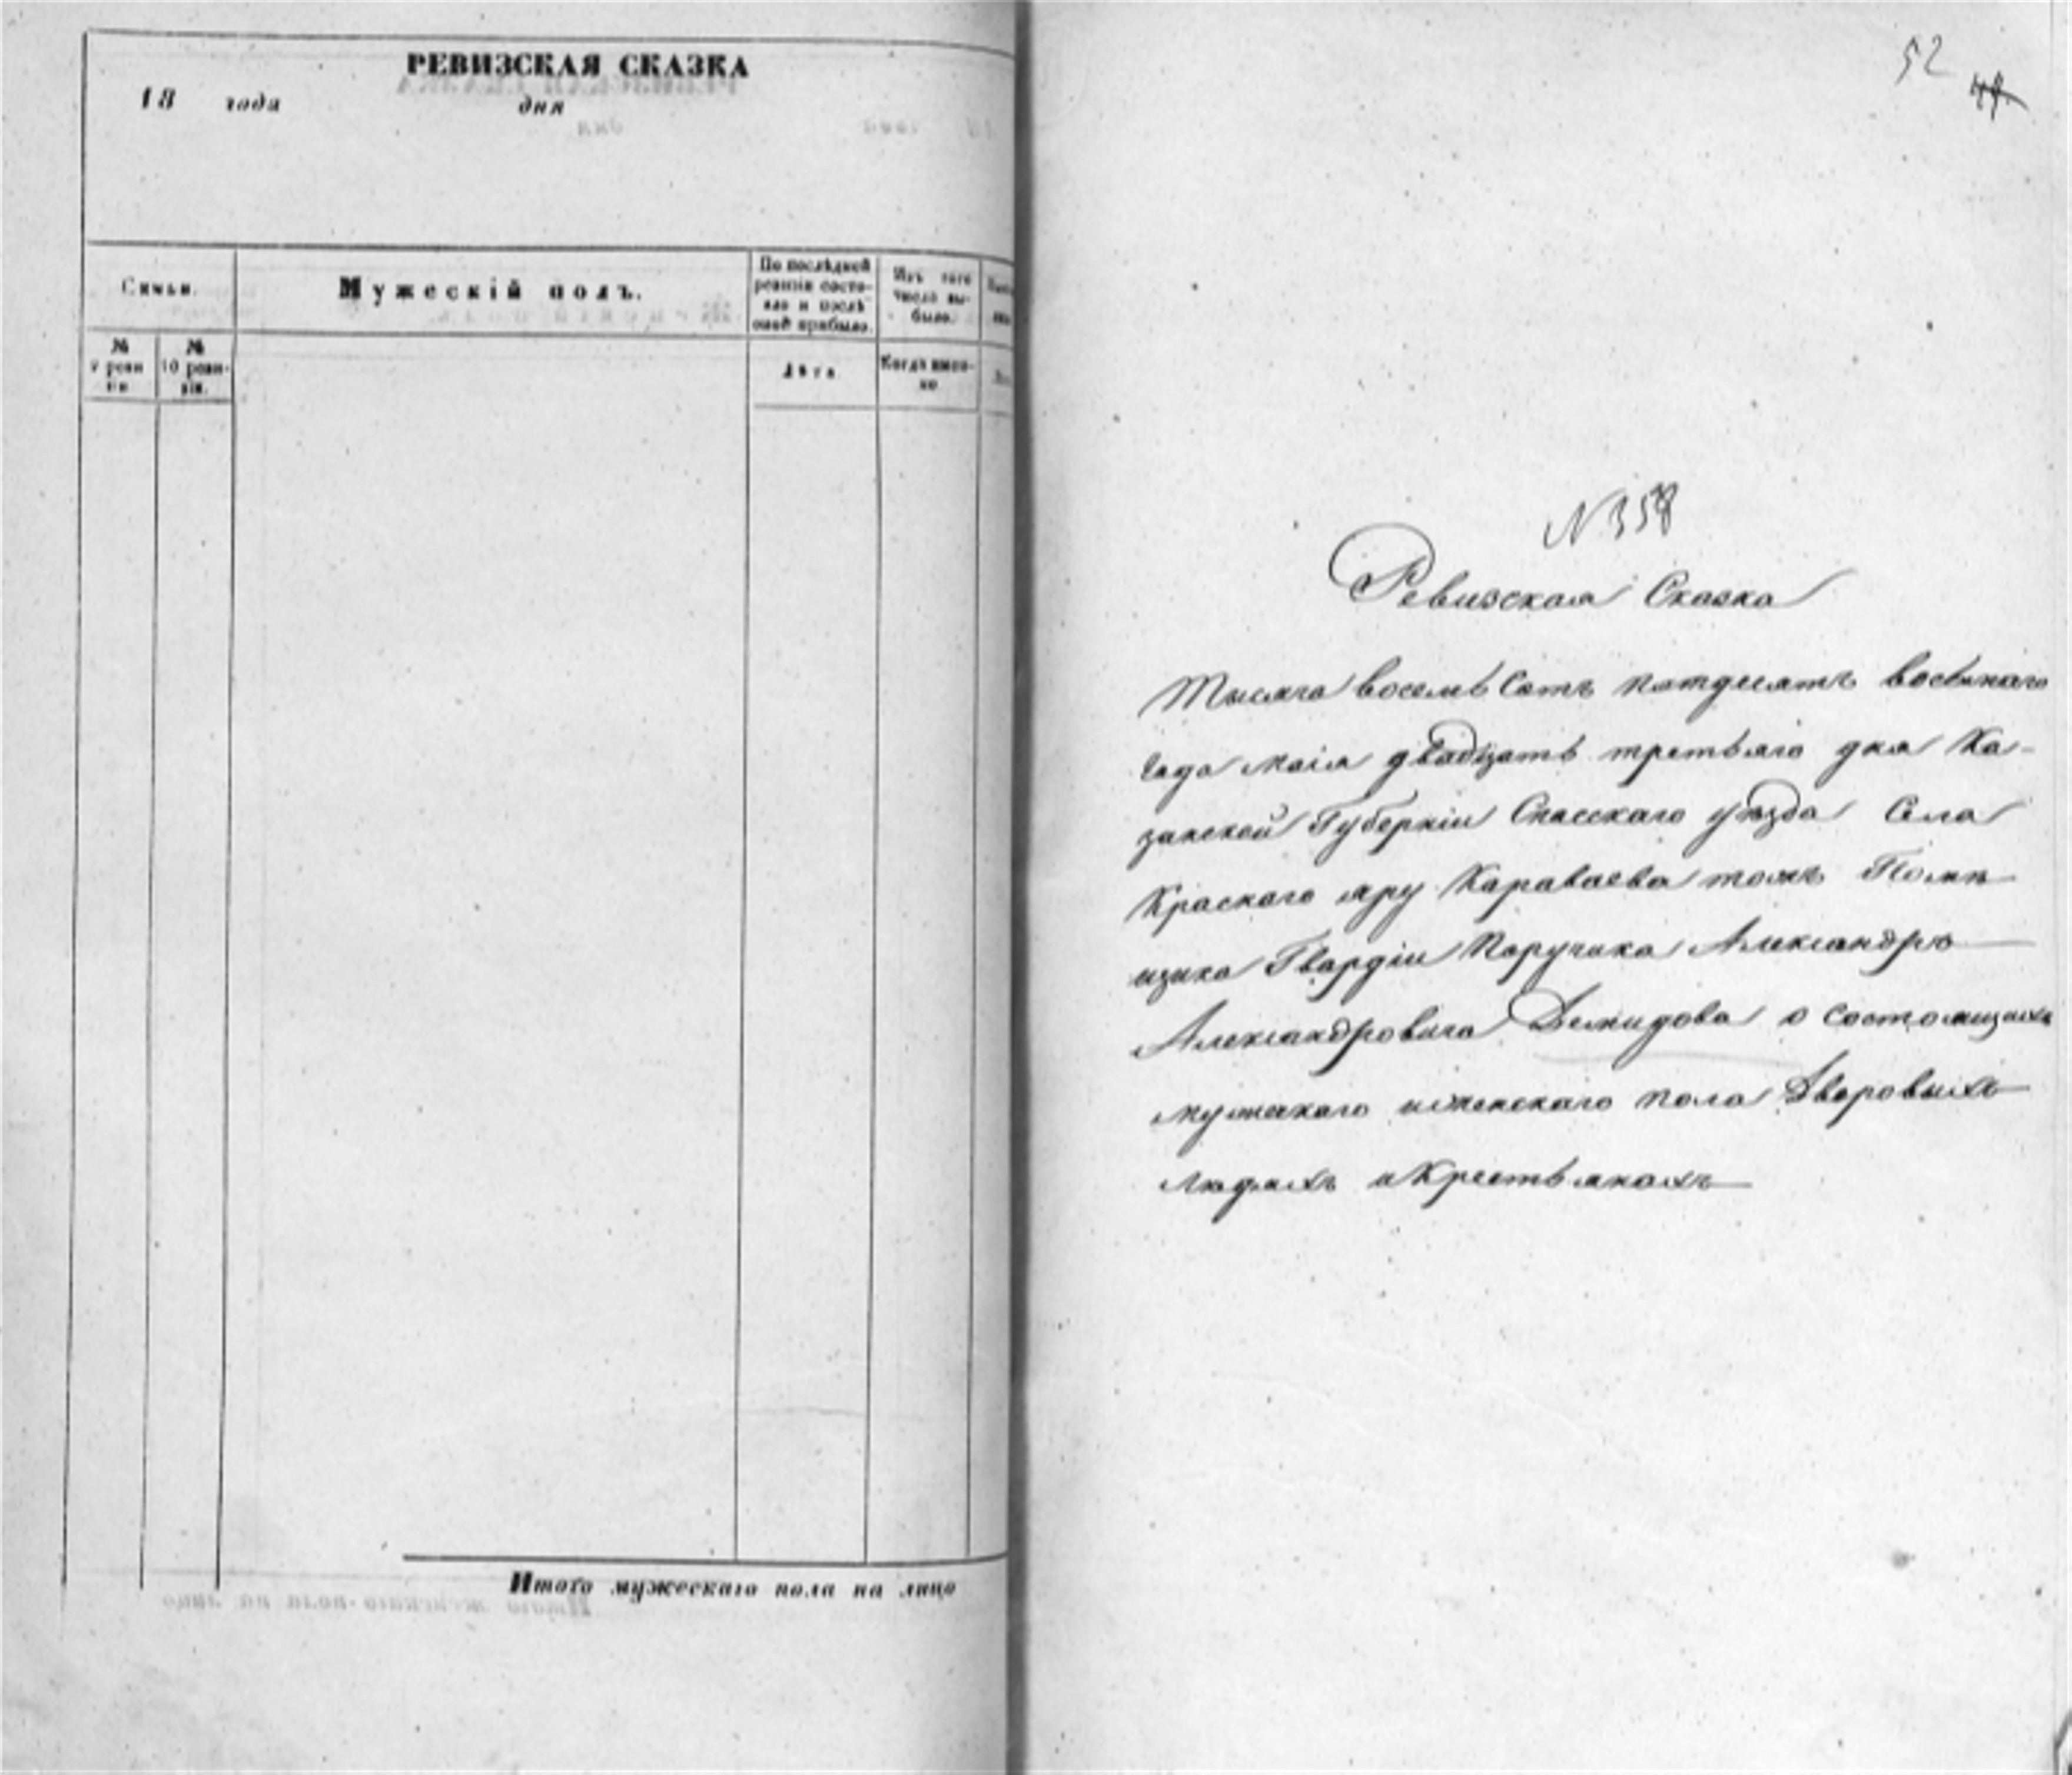 РЕВИЗСКАЯ СКАЗКА
18 года дня
Мужескій полъ.
По послѣдней ревизіи состояло и послѣ оной прибыло.
Изъ того числа выбыло.
№
№
10 ревизіи.
Лѣта
Когда именно
Итого мужескаго пола на лицо
52
N 358
Ревизская Сказка
Тысяча восемь сотъ пятдесятъ восьмаго
года маія двадцать третьяго дня Ка-
занской Губерніи Спасскаго уѣзда Села
Краснаго яру Караваева тожъ Помѣ
щика Гвардіи Поручика Александръ
Александровича Демидова о состоящихъ
мужескаго и женскаго пола Дворовыхъ
людяхъ и Крестьянахъ